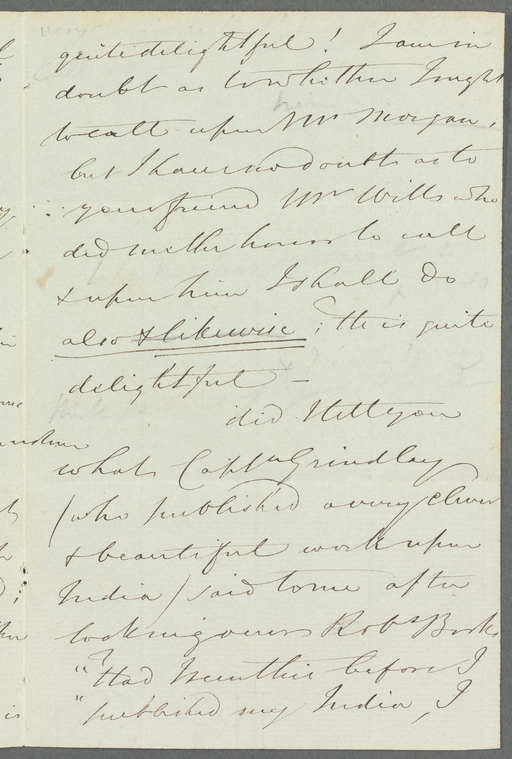 quite delightful! I am in
doubt as to whither I ought
to call upon Mr Morgan,
but I have no doubts as to
your friend Mr Wills who
did me the honor to call
& upon him I shall do
also & likewise; he is quite
delightful –
did I tell you
what Captn Grindlay
(who published a very clever
& beautiful work upon
India) said to me after
looking over Robts Books
"Had I seen this before I
"published my India, I